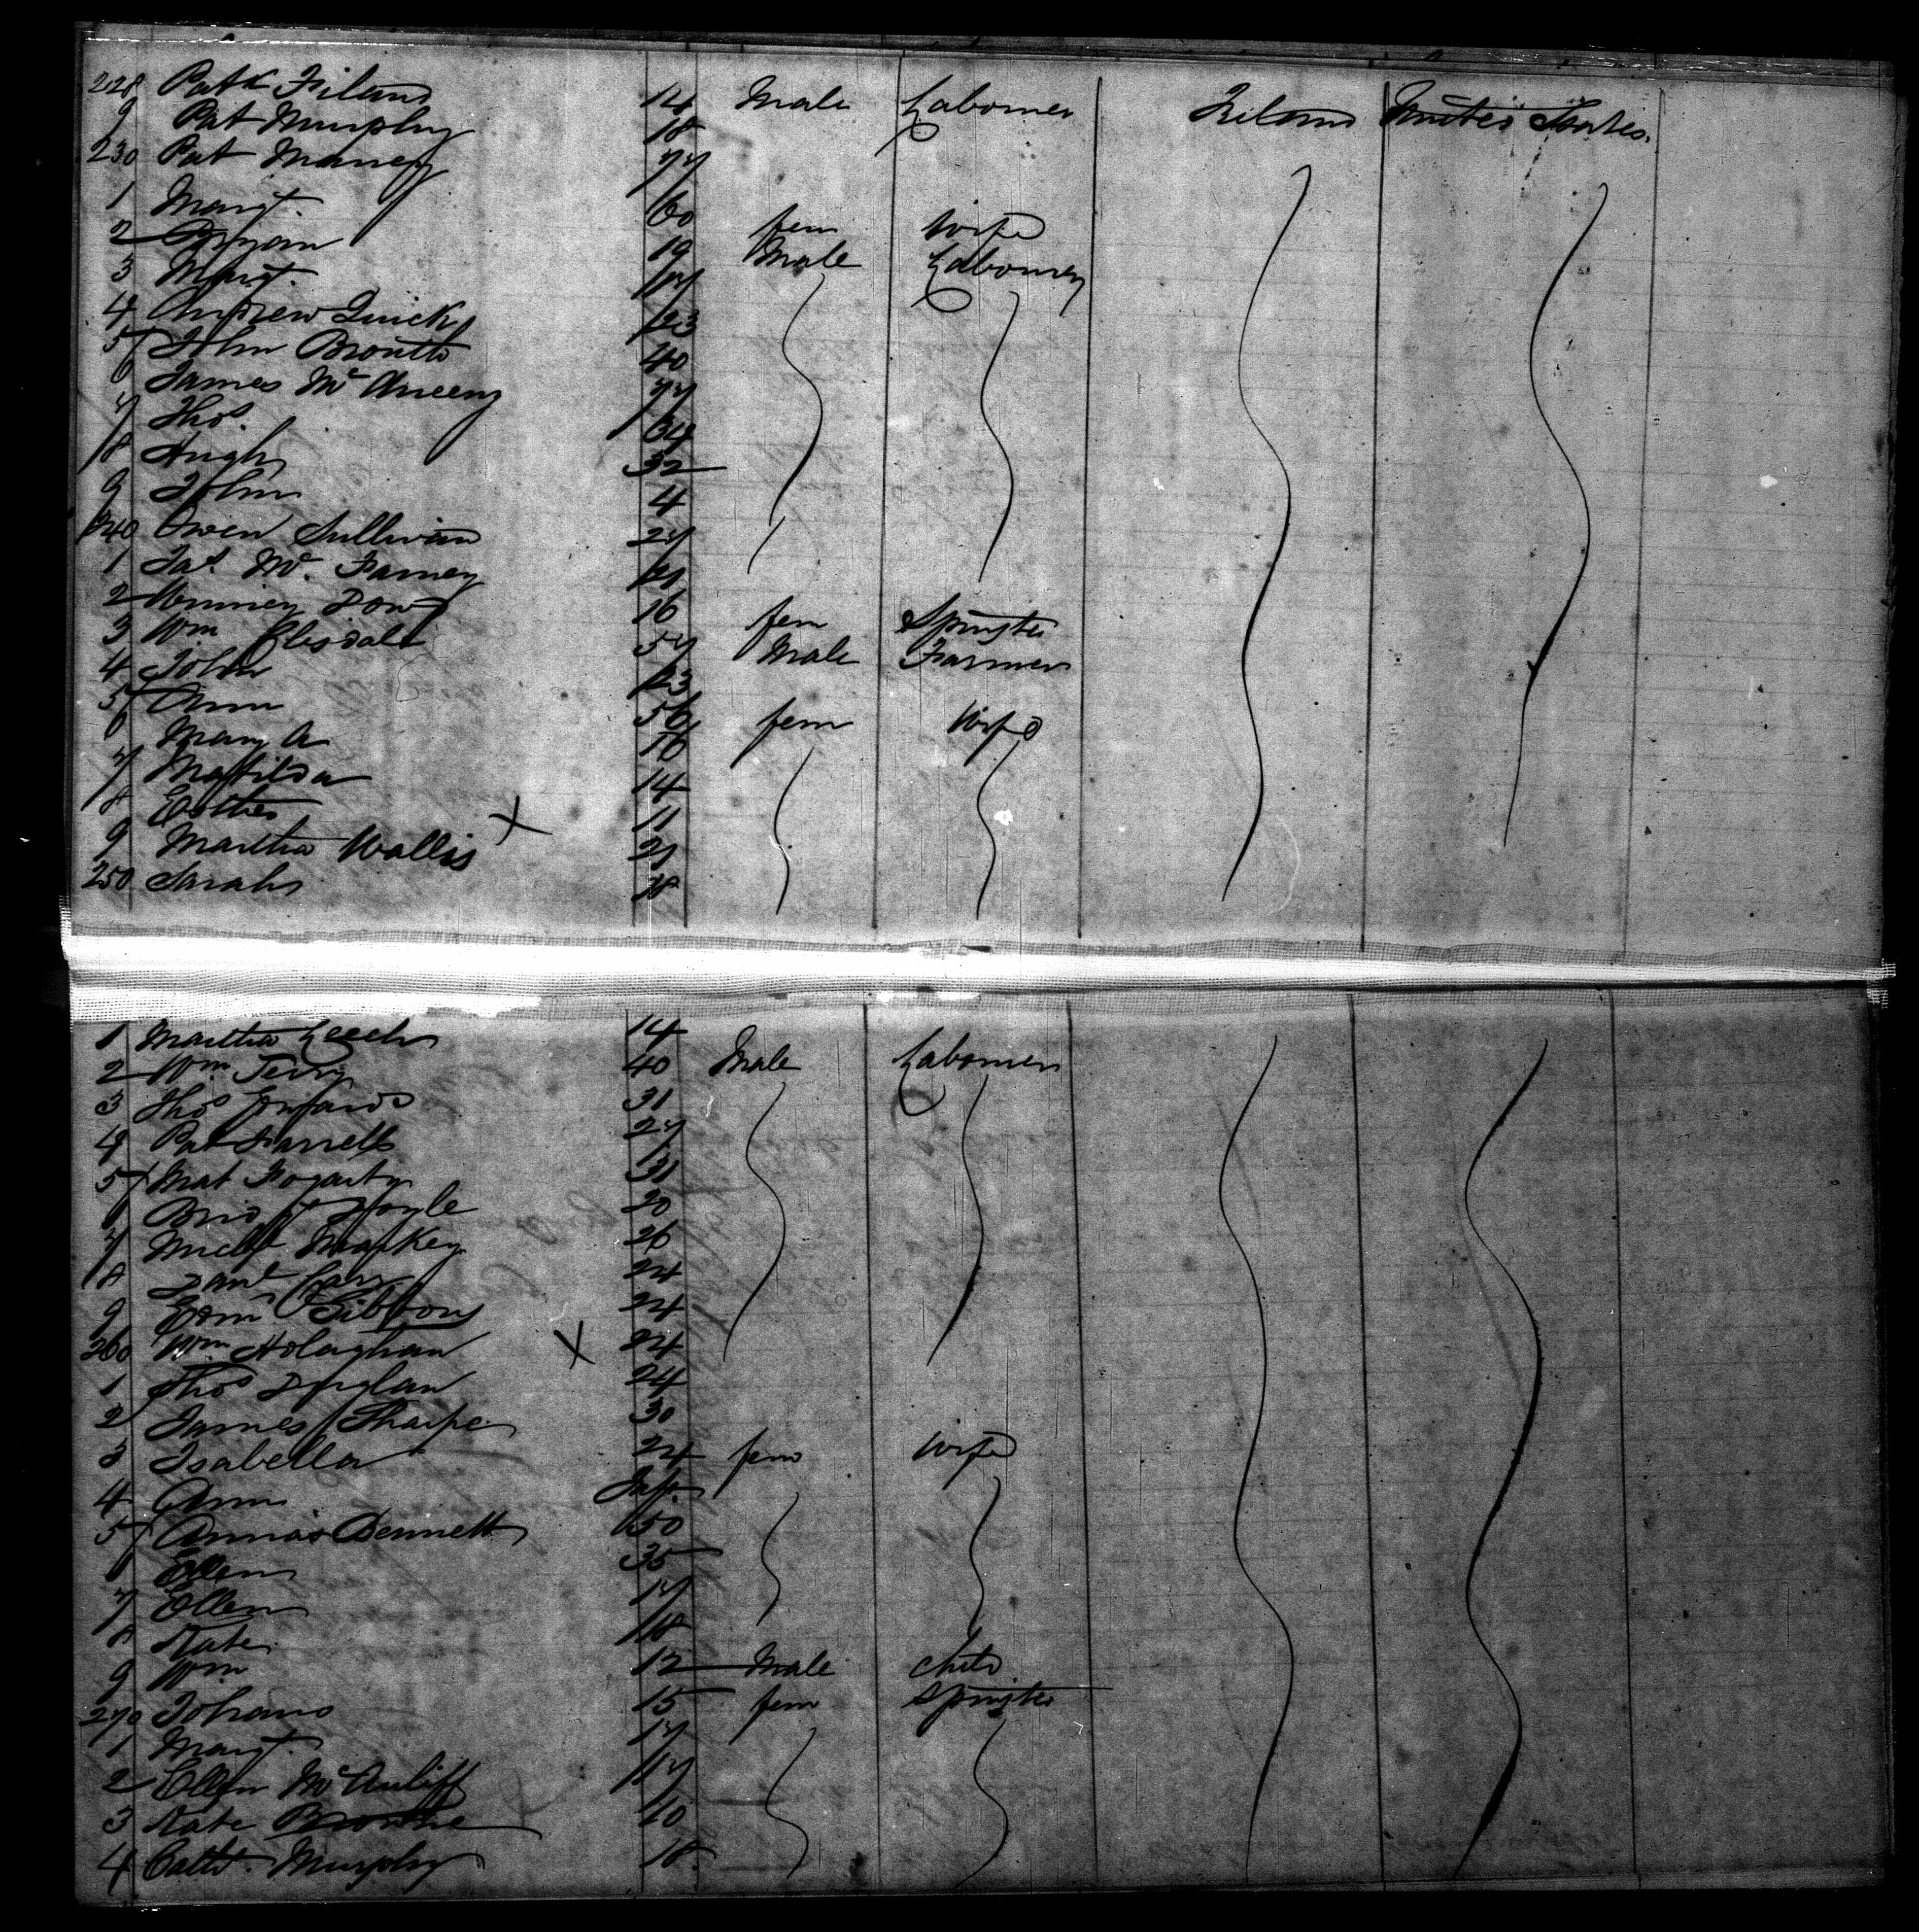 228 Patk 14 Male Labourer Ireland United States.
9 Pat Murphy 18
230 Pat
1 Margt. 60 fem wife
2 Bryan 19 Male Labourer
3 Margt.
4 Andrew Quick 23
5 John 40
6 James
7 Thos. 34
8 Hugh 32
9 John 4
240 Owen Sullivan 27
1 Jas.
2 16 fem Spinster
3 Wm 57 Male Farmer
4 John 23
5 Ann 56 fem Wife
6 Mary A
7 Matilda 14
8 Esther 11
9 Martha Wallis X 21
250 Sarah 18
1 Martha Leech 14
2 Wm Terry 40 Male Labourer
3 Thos 31
4 Pat Farrell 27
5 Mat Fogarty 31
6 Bridgt Doyle 20
7 Michl Markey 26
8 Danl Carr 24
9 Edmd Gibbons 24
260 Wm Holaghan X 24
1 Thos 24
2 James Sharpe 30
3 Isabella 24 fem wife
4 Ann Inft.
5 Bennett 50
6 Ellen 35
7 Ellen 17
8 Kate 18
9 Wm 12 Male child
270 Johana 15 fem Spinster
1 Margt. 17
2 Ellen McAuliff 17
3 Kate Browne 40
4 Cathe. Murphy 18.